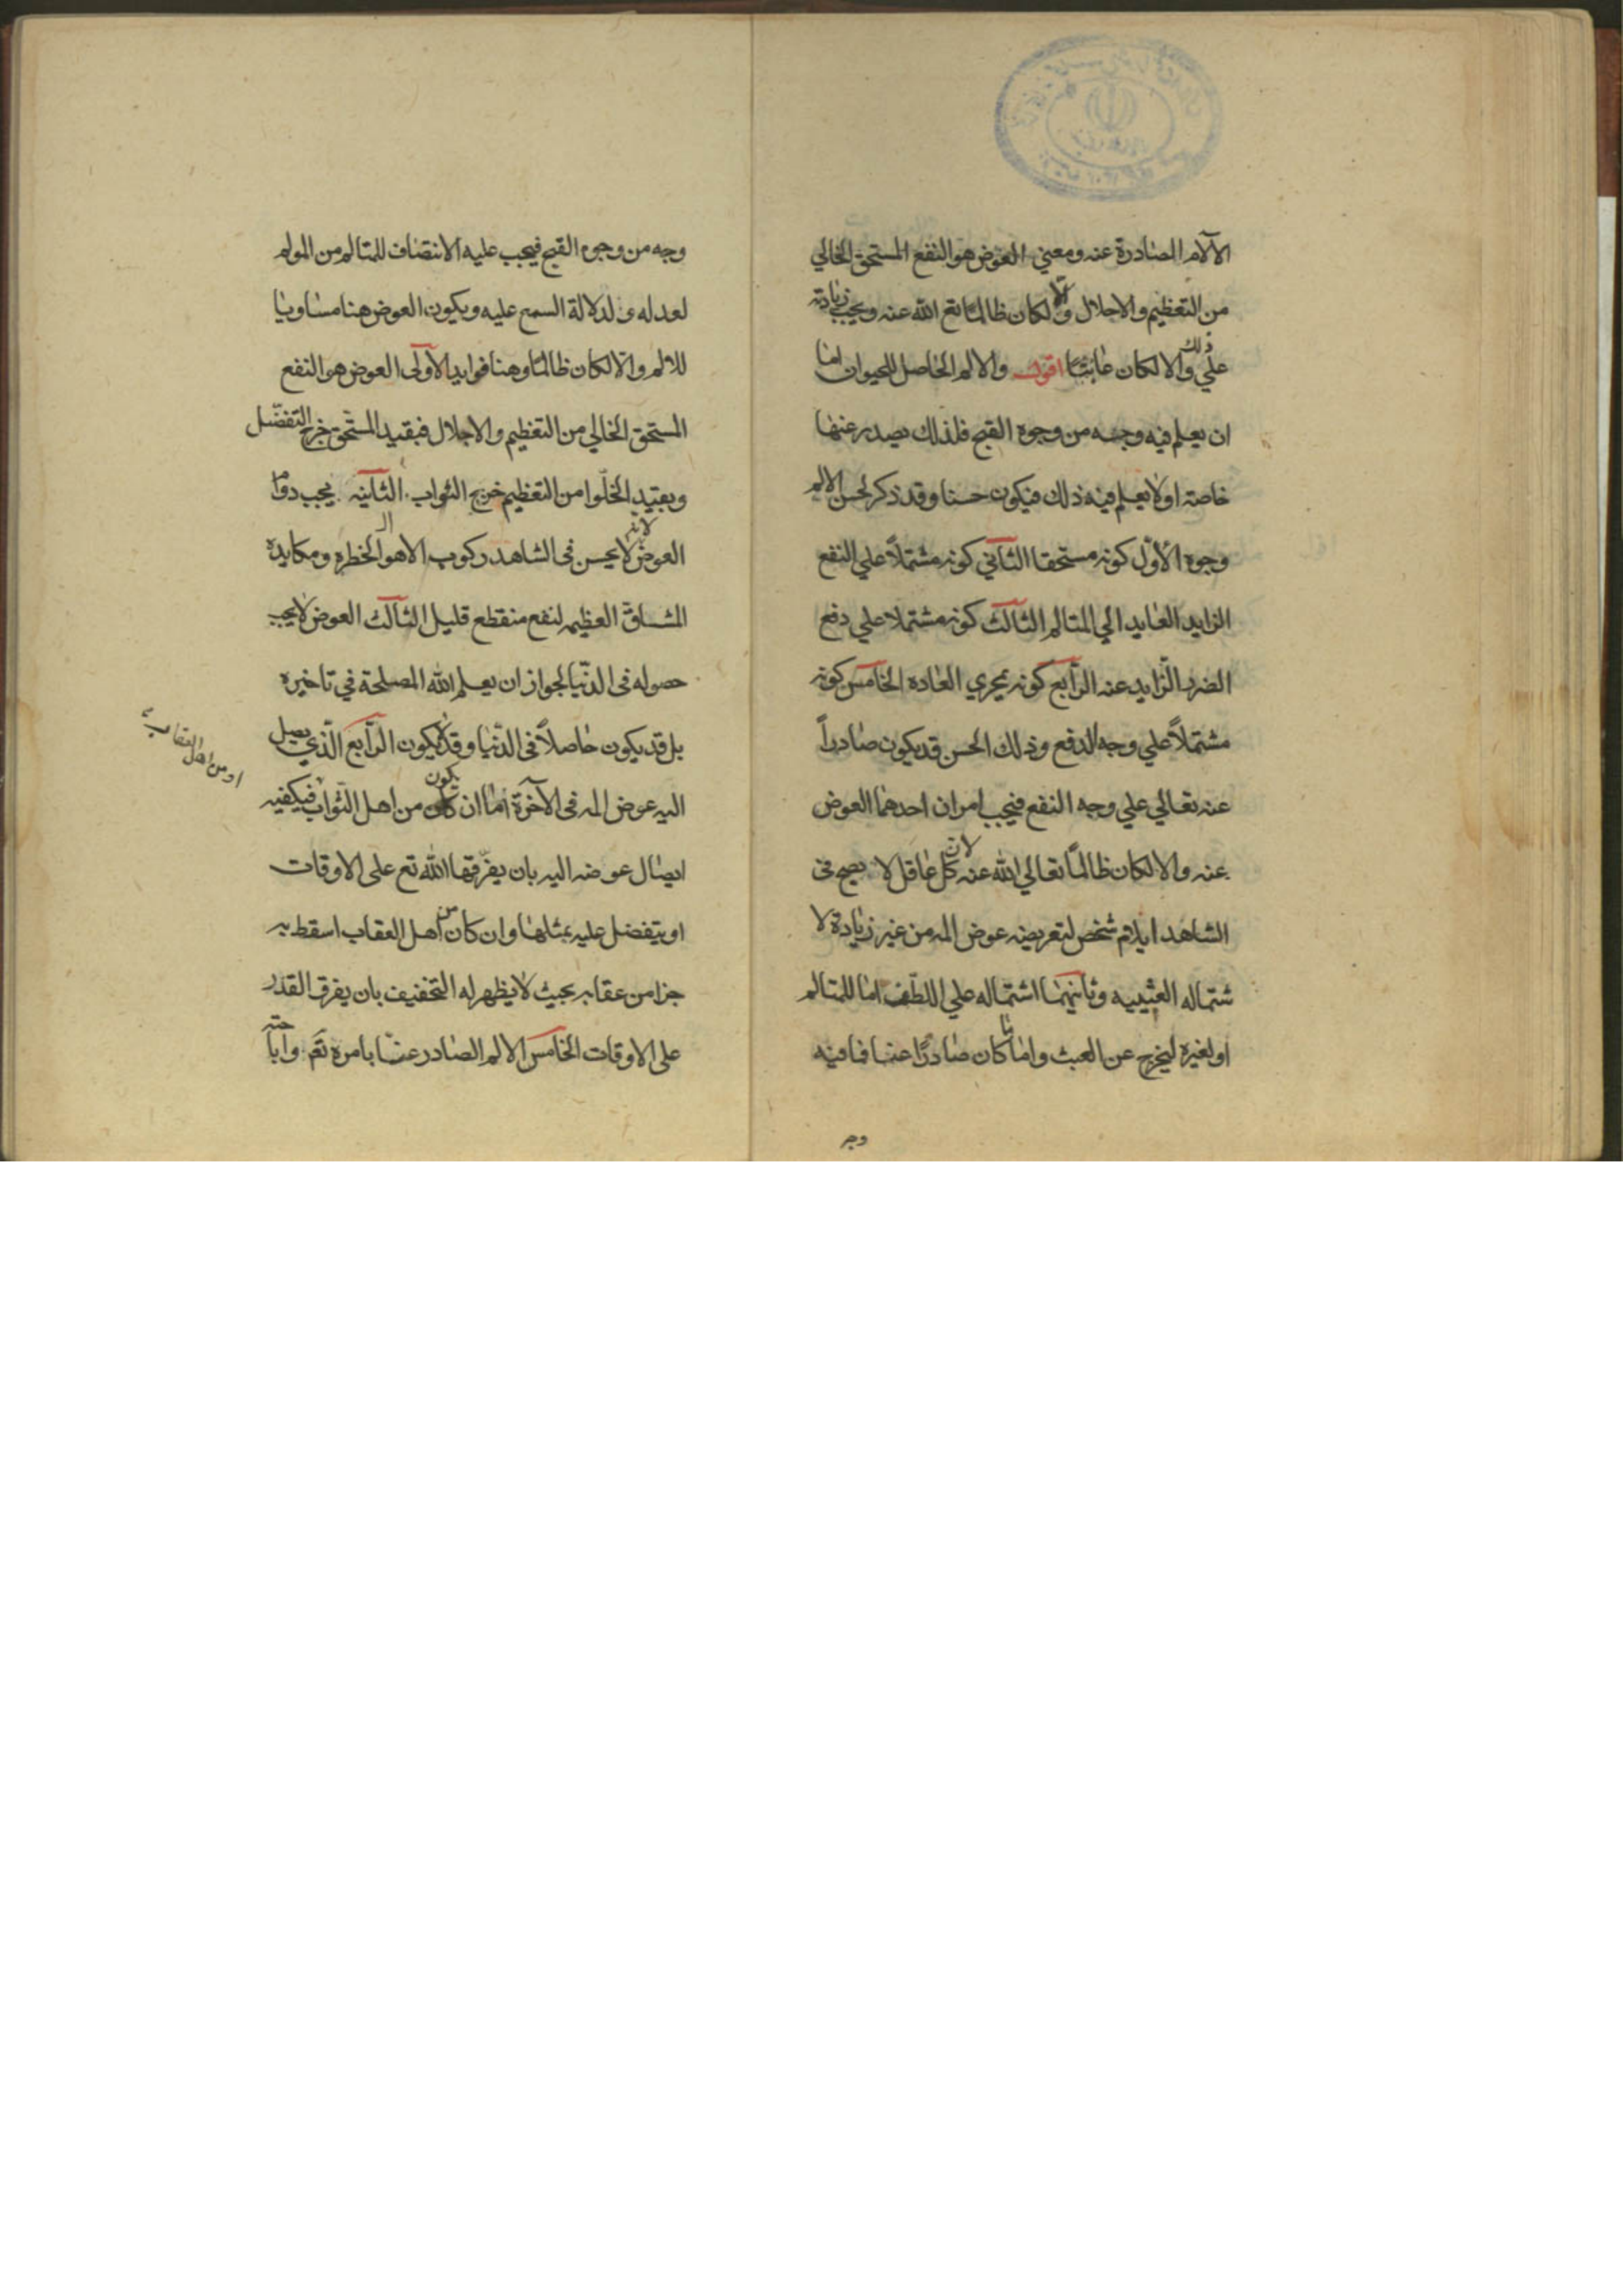 الآلام الصادرة عنه ومعني العوض هو النفع المستحق الخالي
من التعظيم والاجلال والا لكان ظالما تع الله عنه ويجب زيادته
علي ذلك والا لكان عابثا اقول والالم الحاصل للحيوان اما
ان يعلم فيه وجه من وجوه القبح فلذلك يصدر عنها
خاصة اولا يعلم فيه ذلك فيكون حسنا وقد ذكر لحسن الالم
وجوه الأول كونه مستحقا الثاني كونه مشتملاً علي النفع
الزايد العايد الي المتالم الثالث كونه مشتملا علي دفع
الضرر الزايد عنه الرابع كونه بمجري العاده الخامس كونه
مشتملاً علي وجه الدفع وذلك الحسن قد يكون صادراً
عنه تعالي علي وجه النفع فيجب امران احدهما العوض
عنه والا لكان ظالماً تعالي الله عنه لان كل عاقل لا يصح فى
الشاهد ايلام شخص لتعريضه عوض المه من غير زيادة لا
شتماله العبثيه وثانيهما اشتماله علي اللطف اما للمتالم
او لغيره ليخرج عن العبث واما ما كان صادرًا عنا فما فيه
وجه
وجه من وجوه القبح فيجب عليه الانتصاف للمتالم من المولم
لعدله و لدلالة السمع عليه ويكون العوض هنا مساويا
للالم والا لكان ظالما وهنا فوايد الأولى العوض هو النفع
المستحق الخالي من التعظيم والاجلال فبقيد المستحق خرج التفضّل
وبقيد الخلوا من التعظيم خرج الثواب الثانيه يجب دوام
العوض لانه لا يحسن فى الشاهد ركوب الاهوال الخطره ومكابدة
المشاق العظيم لنفع منقطع قليل الثالث العوض لا يجب
حصوله فى الدنيا لجواز ان يعلم الله المصلحة في تاخيره
بل قد يكون حاصلاً فى الدنيا وقد لا يكون الرابع الذي يصل
اليه عوض المه فى الآخرة اما ان يكون من اهل الثواب فيكفيه
او من اهل العقاب
ايصال عوضه اليه بان يفرّقها الله تع على الاوقات
او يتفضل عليه بمثلها وان كان من اهل العقاب اسقط به
جزا من عقابه بحيث لا يظهر له التخفيف بان يفرق القدر
على الاوقات الخامس الالم الصادر عنا بامره تع واباحته